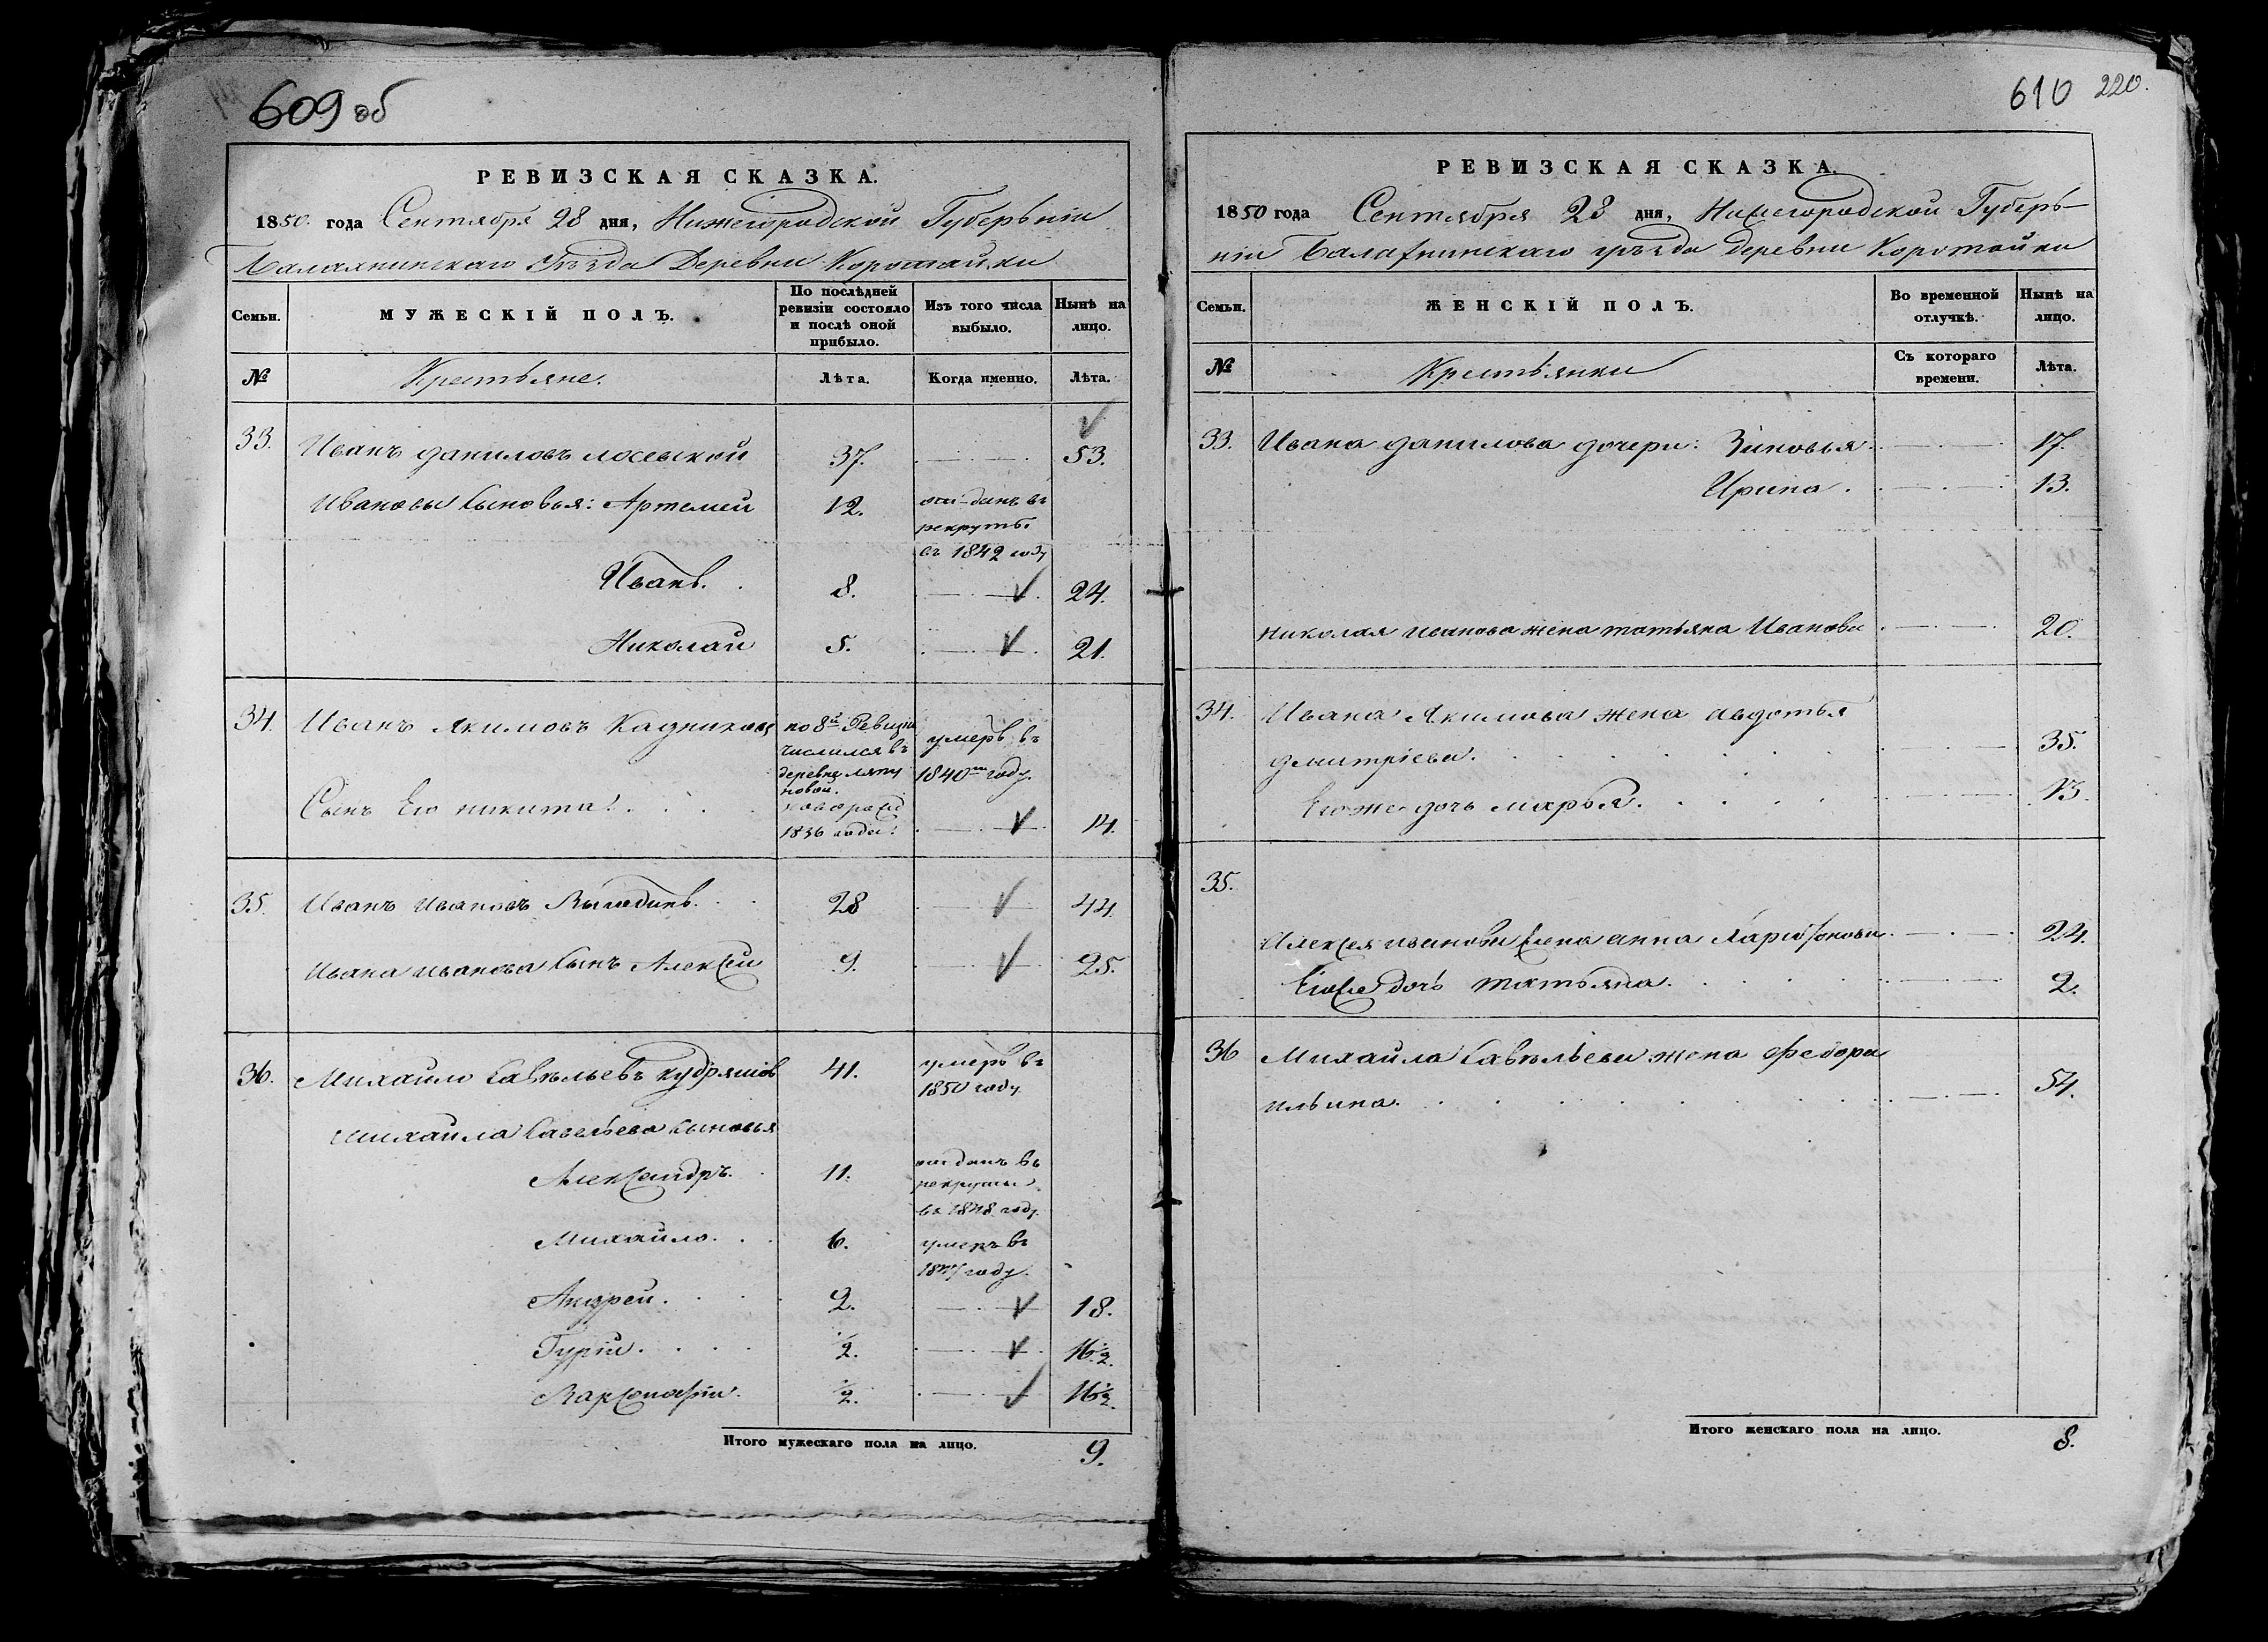 609 об
РЕВИЗСКАЯ СКАЗКА.
1850. года Сентября 28 дня, Нижегородской Губерьніи
Балахнинскаго Уѣзда Деревни Коротайки
Семьи.
МУЖЕСКІЙ ПОЛЪ.
По послѣдней ревизіи состояло и послѣ оной прибыло.
Изъ того числа выбыло.
Нынѣ на лицо.
№ Крестьяне. Лѣта. Когда именно. Лѣта.
33. Иванъ даниловъ лосевской 37. 53.
Ивановы сыновья: Артемей 12. отданъ въ
рекруты
въ 1842 году
Иванъ. 8. 24.
Николай 5. 21.
34. Иванъ Якимовъ Кадников по 8й Ревизіи умеръ въ
числился въ
деревнѣ ляпу 1840м году.
новой.
Сынъ Его никита. новорожд
1836 года. 14.
35. Иванъ Ивановъ 28 44.
Ивана иванова сынъ Алексей 9. 25.
36. Михайло савельевъ кудряшов 41. умеръ въ
1850 году
михайла савельева сыновья
Александръ. 11. отданъ въ
рекруты
въ 1848 году.
Михайло. 6. умеръ въ
году.
Андрей. 2. 18.
Гурій. 1/2. 16 1/2.
Варсонофій. 1/2. 16 1/2.
Итого мужескаго пола на лицо. 9.
610 220.
РЕВИЗСКАЯ СКАЗКА.
1850 года Сентября 28 дня, Нижегородской Губерь-
ніи Балахнинскаго уѣзда Деревни Коротайки
Семьи.
ЖЕНСКІЙ ПОЛЪ.
Во временной отлучкѣ.
Нынѣ на лицо.
№ Крестьянки Съ котораго времени. Лѣта.
33. Ивана данилова дочери: Зиновья. 17.
Ирина. 13.
Николая иванова жена татьяна Иванова 20.
34. Ивана Якимова жена авдотья
дмитріева. 35.
Егоже дочь марья. 13.
35.
Алексея иванова жена анна Ларіонова 24.
Егоже дочь татьяна. 2.
36 Михайла савельева жена Федора
ильина. 54.
Итого женскаго пола на лицо. 8.